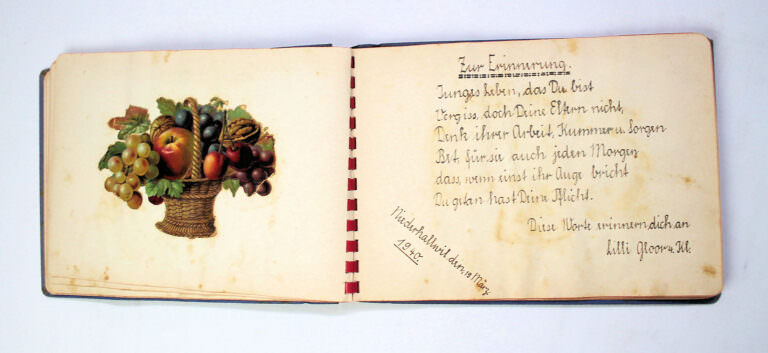 Zur Erinnerung.
Junges Leben, das Du bist
Vergiss, doch Deine Eltern nicht,
Denk ihrer Arbeit, Kummer u. Sorgen
Bet für sie auch jeden Morgen
dass, wenn einst ihr Auge bricht
Du getan hast Deine Pflicht.
Diese Worte erinnern dich an
Lilli Gloor u. Kl.
Niederhallwil den 10 März
1940